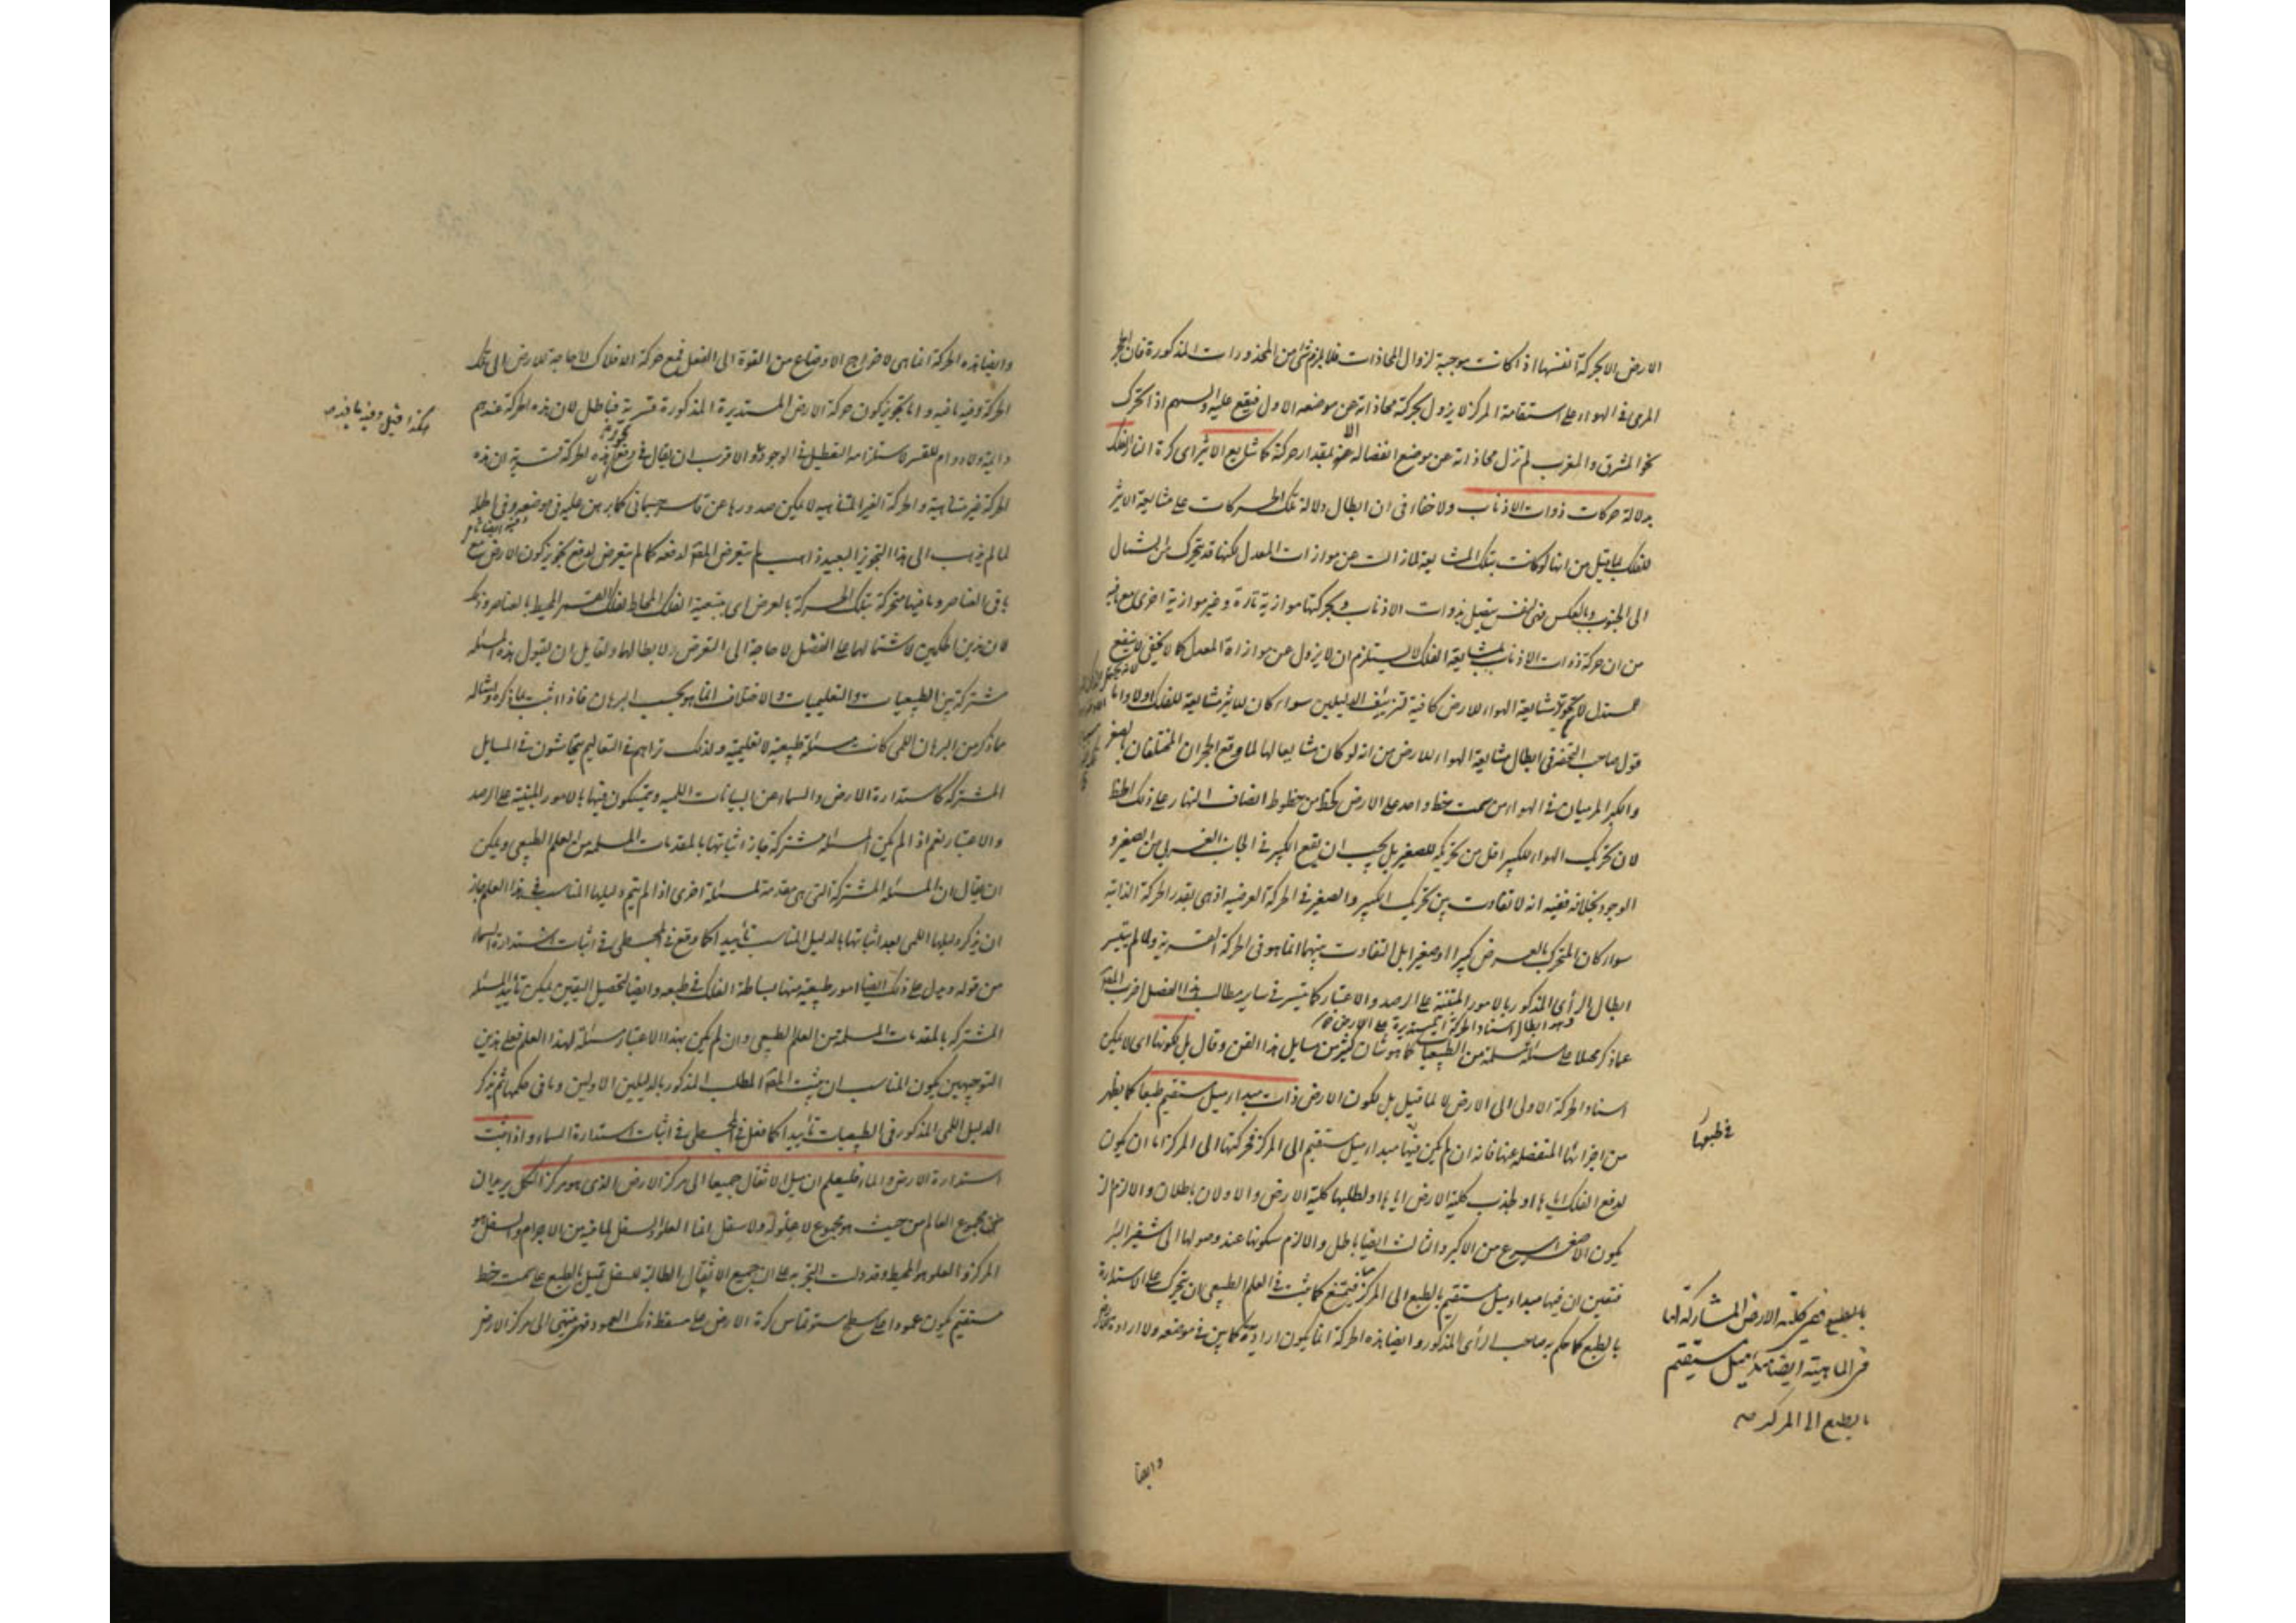 الارض الا بحركة انفسها اذا كانت موجبة لزوال المحاذات فلا يلزم شئ من المحذورات المذكورة فان الحجر
المرمى فى الهواء على استقامة المركز لا يزول بحركته محاذاته عن موضعه الاول فيقع عليه والسهم اذا تحرك
نحو المشرق والمغرب لم تزل محاذاته عن موضع انفصاله عنه الا بمقدار حركته كما شايع الاثير اى كرة النار الفلك
بدلالة حركات ذوات الاذناب ولا خفاء فى ان ابطال دلالة تلك الحركات على مشايعة الاثير
للفلك بما قيل من انها لو كانت بتلك المشايعة لما زالت عن موازات المعدل لكنها قد تتحرك من الشمال
الى الجنوب وبالعكس بذوات الاذناب وبحركتها موازية تارة وغير موازية اخرى مع ما فيه
من ان حركة ذوات الاذناب لمشايعة الفلك لا يستلزم ان لا يزول عن موازاة المعدل كما لا يخفى لا ينفع
المستدل لان تجويز مشايعة الهواء للارض كافية لتزييف الدليلين سواء كان للاثير مشايعة للفلك اولا واما
قول صاحب التحفة فى ابطال مشايعة الهواء للارض من انه لو كان مشايعا لها لما وقع الحجران المختلفان بالصغر
والكبر المرميان فى الهواء من سمت خط واحد على الارض كخط من خطوط انصاف النهار على ذلك الخط
لان تحريك الهواء للكبير اقل من تحريكه للصغير بل يجب ان يقع الكبير فى الجانب الغربى من الصغير و
الوجود بخلافه ففيه انه لا تفاوت بين تحريك الكبير والصغير فى الحركة العرضية اذ هى بقدر الحركة الذاتية
سواء كان المتحرك بالعرض كبيرا او صغيرا بل التفاوت بينهما انما هو فى الحركة القسرية ولما لم يتيسر
ابطال الرأى المذكور بالامور المبنية على الرصد والاعتبار كما يتيسر فى ساير مطالب هذا الفصل اضرب المص
وهو ابطال اسناد الحركة المستديرة على الارض
عما ذكر محيلا على مسئلة مسلمة من الطبيعيات كما هو شان كثير من مسايل هذا الفن وقال بل لكونها اى لا يمكن
اسناد الحركة الاولى الى الارض لا لما قيل بل لكون الارض ذات مبداء ميل مستقيم طبعا كما يظهر
من اجزائها المنفصلة عنها فانه ان لم يكن فيها مبداء ميل مستقيم الى المركز فحركتها الى المركز اما ان يكون
لدفع الفلك اياها او لجذب كلية الارض اياها او لطلبها كلية الارض والاولان باطلان والا لزم ان
يكون الاصغر اسرع من الاكبر والثالث ايضا باطل والا لزم سكونها عند وصولها الى شفير البئر
فتعين ان فيها مبداء ميل مستقيم بالطبع الى المركز فيمتنع كما ثبت فى العلم الطبيعى ان يتحرك على الاستدارة
بالطبع كما حكم به صاحب الرأى المذكور وايضا هذه الحركة انما يكون ارادية كما بين فى موضعه ولا ارادة
فى طبعها
بالطبع ففى كلية الارض المشاركة لها
فى الماهية ايضا مبداء ميل مستقيم
بالطبع الى المركز صه
وايضا
وايضا هذه الحركة انما هى لاخراج الاوضاع من القوة الى الفعل فمع حركة الافلاك لا حاجة للارض الى تلك
الحركة وفيه ما فيه واما تجويز كون حركة الارض المستديرة المذكورة قسرية فباطل لان هذه الحركة عندهم
دائمة ولا دوام للقسر لاستلزامه التعطيل فى الوجود والاقرب ان يقال فى دفع تجويز هذه الحركة قسرية ان هذه
الحركة غير متناهية والحركة الغير المتناهية لا يمكن صدورها عن قاسر جسمانى كما برهن عليه فى موضعه وفى الجملة
لما لم يذهب الى هذا التجويز البعيد ذاهب لم يتعرض المص لدفعه كما لم يتعرض لدفع تجويز كون الارض مع
باقى العناصر وما فيها متحركة بتلك الحركة بالعرض اى بتبعية الفلك المحاط لفلك القمر المحيط بالعناصر وذلك
لان هذين الحكمين لاشتمالهما على الفصل لا حاجة الى التعرض لابطالهما ولقايل ان يقول هذه المسئلة
مشتركة بين الطبيعيات والتعليميات والاختلاف انما هو بحسب البرهان فاذا اثبت بما ذكره وامثاله
ما ذكر من البرهان اللمى كانت مسئلة طبيعية لا تعليمية ولذلك تراهم فى التعاليم يتحاشون فى المسايل
المشتركة كاستدارة الارض والسماء عن البيانات اللمية ويتمسكون فيها بالامور المبنية على الرصد
والاعتبار نعم اذا لم يكن المسئلة مشتركة جاز اثباتها بالمقدمات المسلمة من العلم الطبيعى ويمكن
ان يقال ان المسئلة المشتركة التى هى مقدمة لمسئلة اخرى اذا لم يتم دليلها المناسب فى هذا العلم جاز
ان يذكر دليلها اللمى بعد اثباتها بالدليل المناسب تأييدا كما وقع فى المجسطى فى اثبات استدارة السماء
من قوله ويدل على ذلك ايضا امور طبيعية منها بساطة الفلك فى طبعه وايضا لتحصيل اليقين يمكن تأييد المسئلة
المشتركة بالمقدمات المسلمة من العلم الطبيعى وان لم يكن بهذا الاعتبار مسئلة لهذا العلم فعلى هذين
التوجيهين يكون المناسب ان يثبت المص المطلب المذكور بالدليلين الاولين وما فى حكمهما ثم يذكر
الدليل اللمى المذكور فى الطبيعيات تأييدا كما فعل فى المجسطى فى اثبات استدارة السماء واذا ثبت
استدارة الارض والماء فليعلم ان ميل الاثقال جميعا الى مركز الارض الذى هو مركز الكل يريد ان
مجموع العالم من حيث هو مجموع لا علو له ولا سفل انما العلو والسفل لما فيه من الاجرام والسفل هو
المركز والعلو هو المحيط وقد دلت التجربة على ان جميع الاثقال الطالبة للسفل تميل بالطبع على سمت خط
مستقيم يكون عمودا على سطح مستو تماس كرة الارض على مسقط ذلك العمود فهو منتهى الى مركز الارض
هكذا قيل وفيه ما فيه